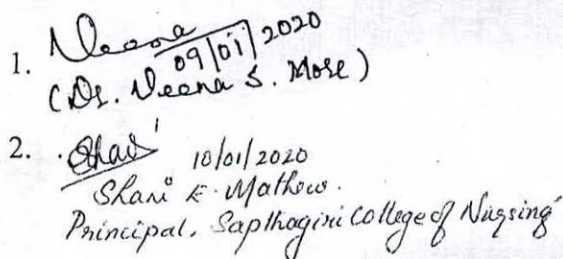 1. Veena
09/01/2020
(Dr. Veena S. More)
2. Shani
10/01/2020
Shani K. Mathew.
Principal, Sapthagiri College of Nursing